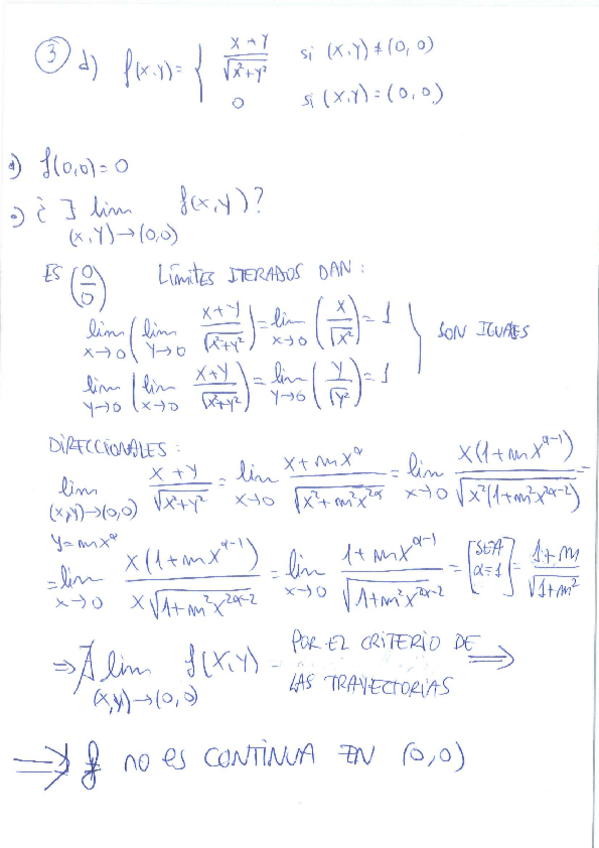 ③ d) f(x,y) = { x+y / √(x²+y²) si (x,y) ≠ (0,0)
0 si (x,y) = (0,0)
a) f(0,0) = 0
b) ¿ ∃ lim f(x,y)?
(x,y)→(0,0)
ES (0/0) LÍMITES ITERADOS DAN:
lim x→0 ( lim y→0 (x+y)/√(x²+y²) ) = lim x→0 ( x/√x² ) = 1 } SON IGUALES
lim y→0 ( lim x→0 (x+y)/√(x²+y²) ) = lim y→0 ( y/√y² ) = 1
DIRECCIONALES:
lim (x,y)→(0,0) y=mx^α (x+y)/√(x²+y²) = lim x→0 (x+mx^α)/√(x²+m²x^{2α}) = lim x→0 x(1+mx^{α-1})/√(x²(1+m²x^{2α-2})) =
= lim x→0 x(1+mx^{α-1})/(x√(1+m²x^{2α-2})) = lim x→0 (1+mx^{α-1})/√(1+m²x^{2α-2}) = [SEA α=1] = (1+m)/√(1+m²)
⇒ ∄ lim f(x,y) - POR EL CRITERIO DE ⇒
(x,y)→(0,0) LAS TRAYECTORIAS
⇒ f no es CONTINUA EN (0,0)